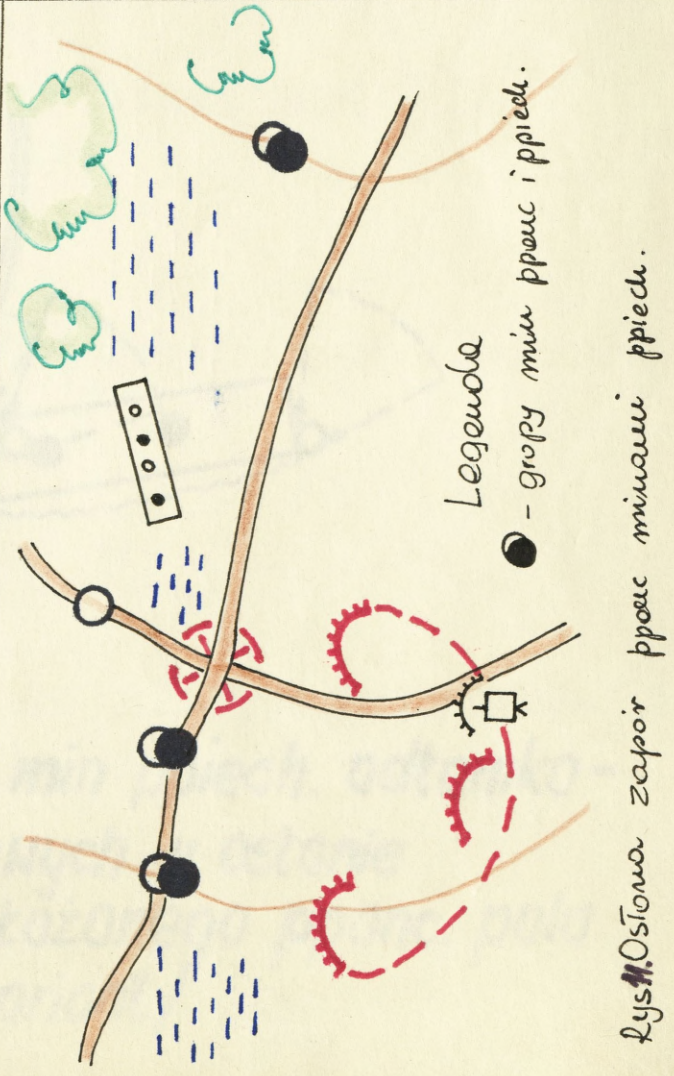 Legenda
- gropy min ppanc i ppiech.
Rys 11. Osłona zapór ppanc minami ppiech.